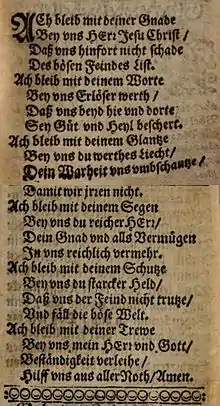 ACh bleib mit deiner Gnade
Bey vns HErr Jesu Christ /
Daß vns hinfort nicht schade
Des bösen Feindes List.
Ach bleib mit deinem Worte
Bey vns Erlöser werth /
Daß vns beyd hie vnd dorte
Sey Güt vnd Heyl beschert.
Ach bleib mit deinem Glantze
Bey vns du werthes Liecht /
Dein Warheit vns vmbschantze /
Damit wir jrren nicht.
Ach bleib mit deinem Segen
Bey vns du reicher HErr /
Dein Gnad vnd alls Vermügen
In vns reichlich vermehr.
Ach bleib mit deinem Schutze
Bey vns du starcker Held /
Daß vns der Feind nicht trutze /
Vnd fäll die böse Welt.
Ach bleib mit deiner Trewe
Bey vns mein HErr vnd Gott /
Beständigkeit verleihe /
Hilff vns aus aller Noth / Amen.